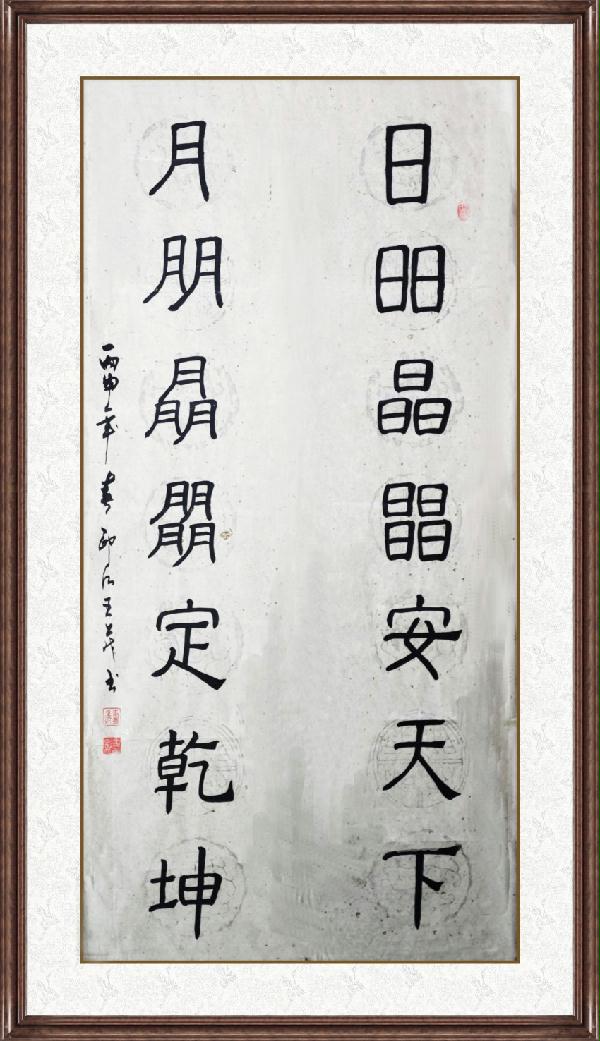 日昍晶𣊫安天下
月朋⿱月朋朤定乾坤
丙申年春 王 书